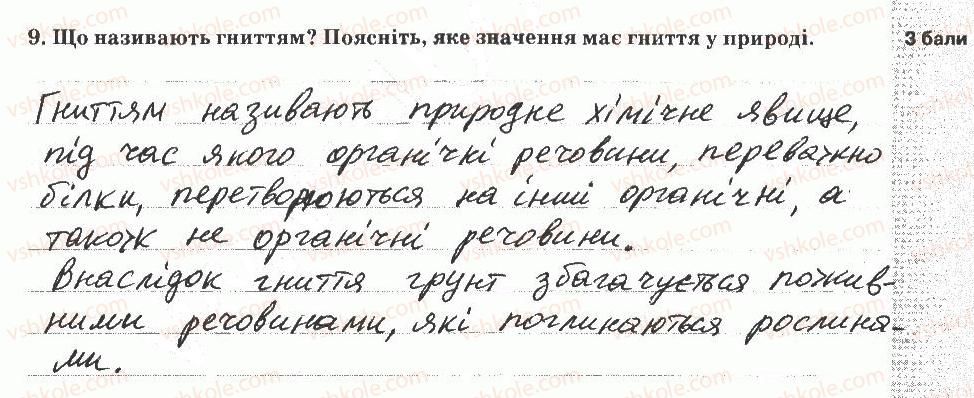 9. Що називають гниттям? Поясніть, яке значення має гниття у природі.
3 бали
Гниттям називають природне хімічне явище,
під час якого органічкі речовини, переважно
білки, перетворюються на інші органічні, а
також не органічні речовини.
Внаслідок гниття грунт збагачується пожив-
ними речовинами, які поглинаються рослина-
ми.